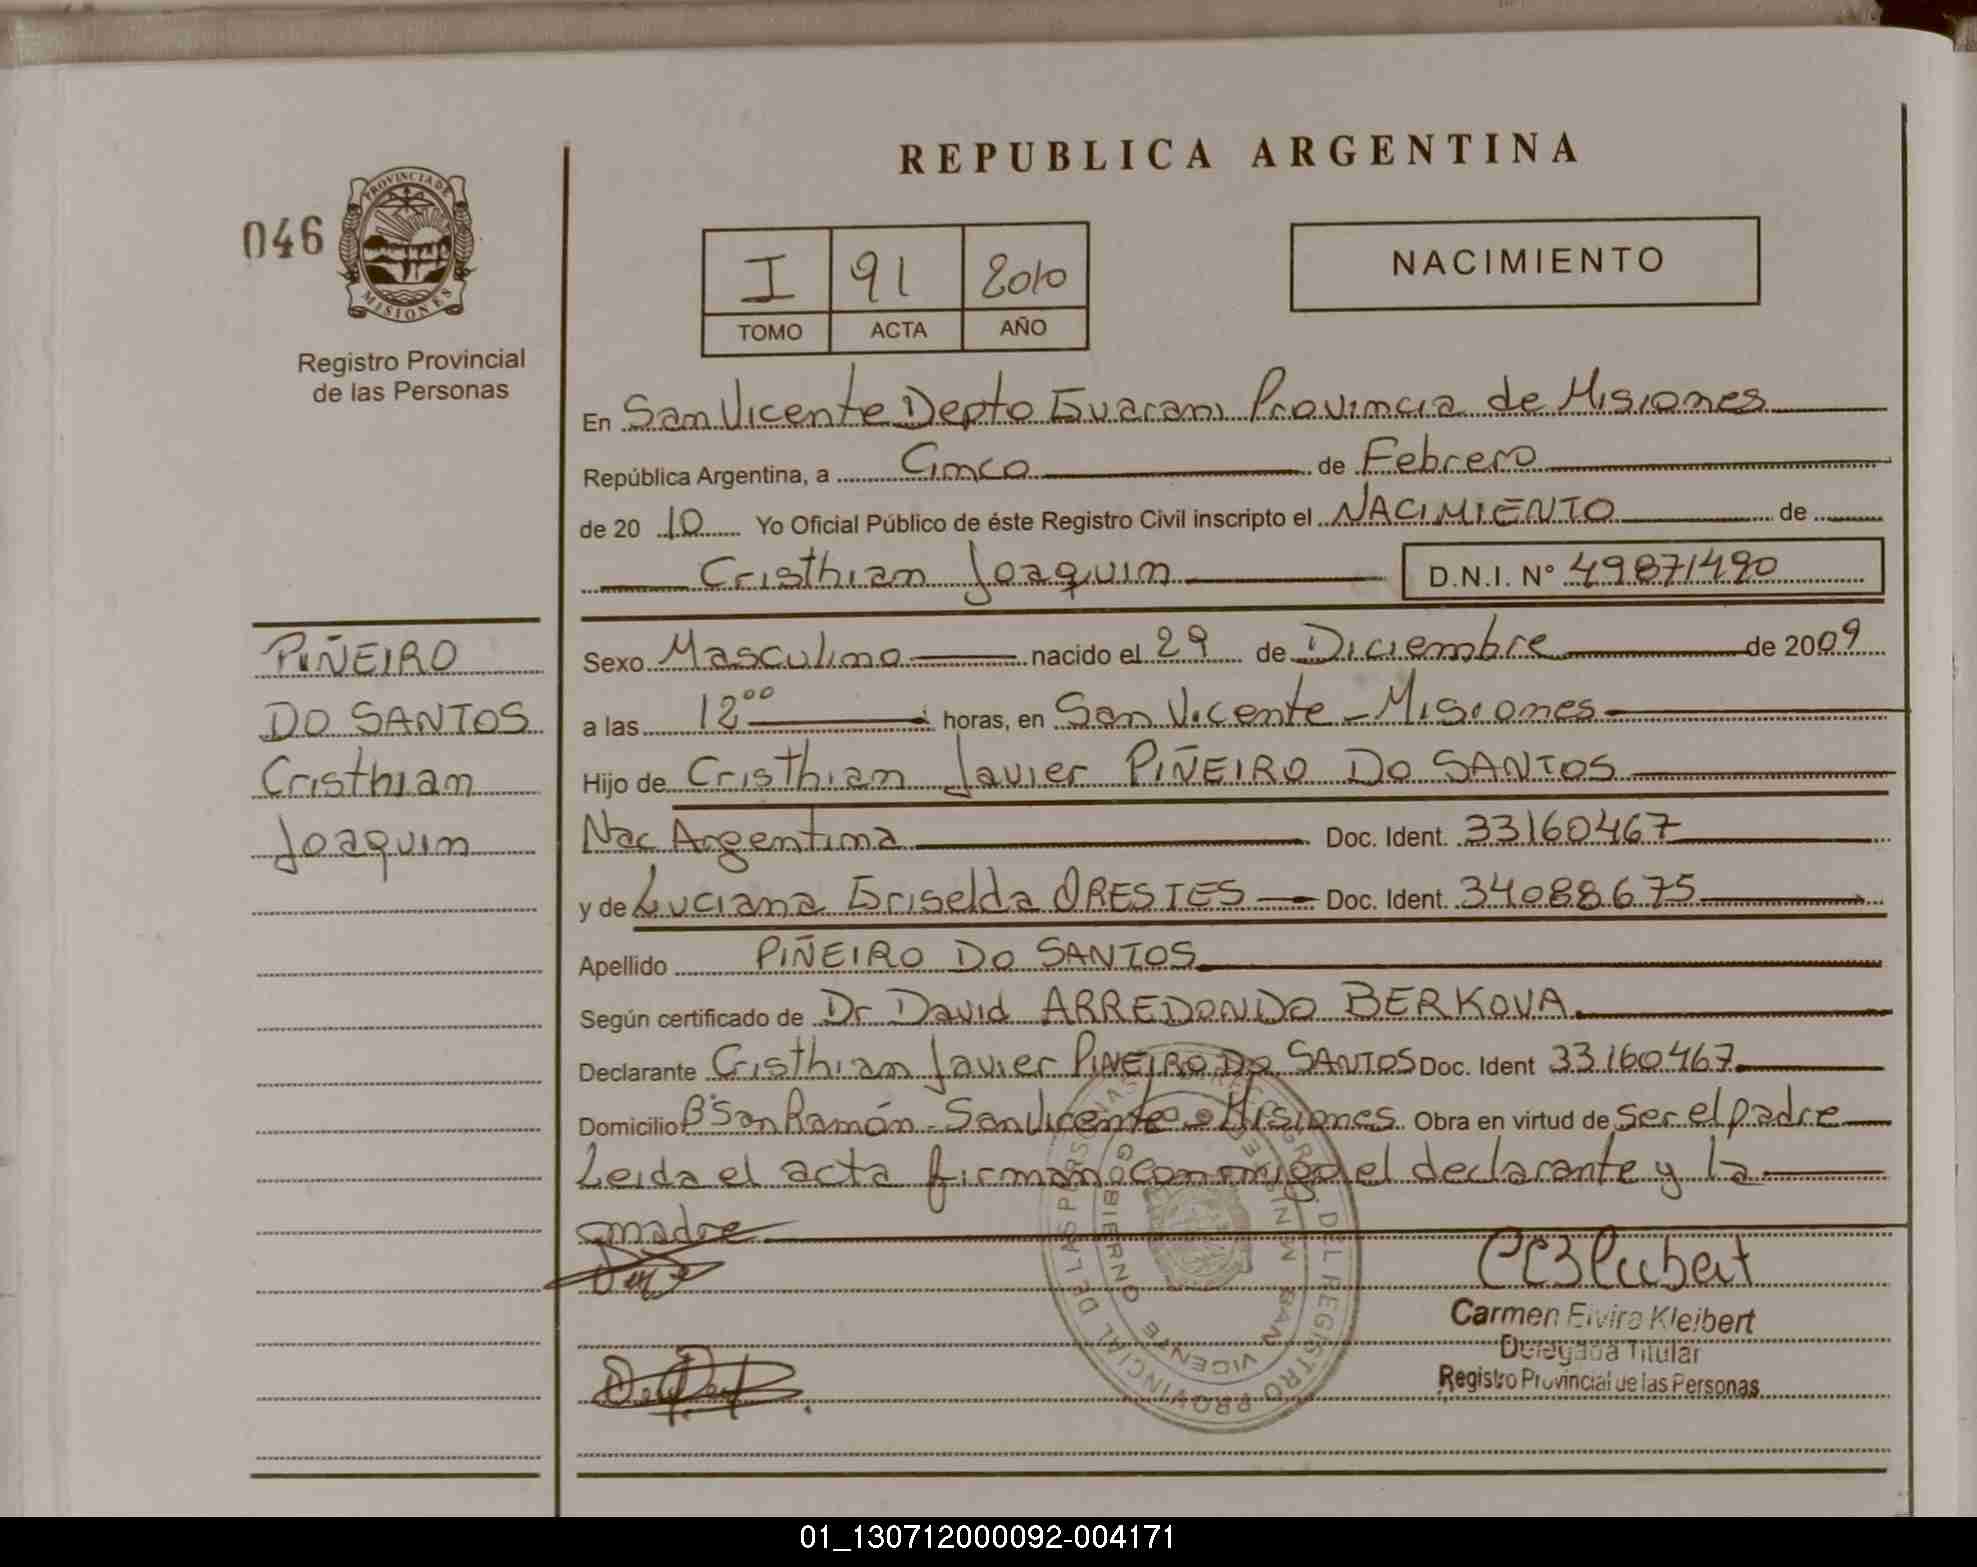 REPUBLICA ARGENTINA
046
PROVINCIA DE
MISIONES
Registro Provincial
de las Personas
I 91 2010
TOMO ACTA AÑO
NACIMIENTO
En San Vicente Depto Guarani Provincia de Misiones
República Argentina, a Cinco de Febrero
de 20 10 Yo Oficial Público de éste Registro Civil inscripto el NACIMIENTO de
Cristhian Joaquin D.N.I. N° 49871490
PIÑEIRO
DO SANTOS
Cristhian
Joaquin
Sexo Masculino nacido el 29 de Diciembre de 2009
a las 12⁰⁰ horas, en San Vicente - Misiones
Hijo de Cristhian Javier PIÑEIRO DO SANTOS
Nac Argentina Doc. Ident. 33160467
y de Luciana Griselda ORESTES Doc. Ident. 34088675
Apellido PIÑEIRO DO SANTOS
Según certificado de Dr David ARREDONDO BERKOVA
Declarante Cristhian Javier PIÑEIRO DO SANTOS Doc. Ident 33160467
Domicilio B° San Ramón - San Vicente - Misiones Obra en virtud de ser el padre
Leida el acta firman conmigo el declarante y la
madre
Carmen Elvira Kleibert
Delegada Titular
Registro Provincial de las Personas
PROVINCIAL DE LAS PERSONAS
DEL REGISTRO
GOBIERNO
SAN VICENTE
01_130712000092-004171